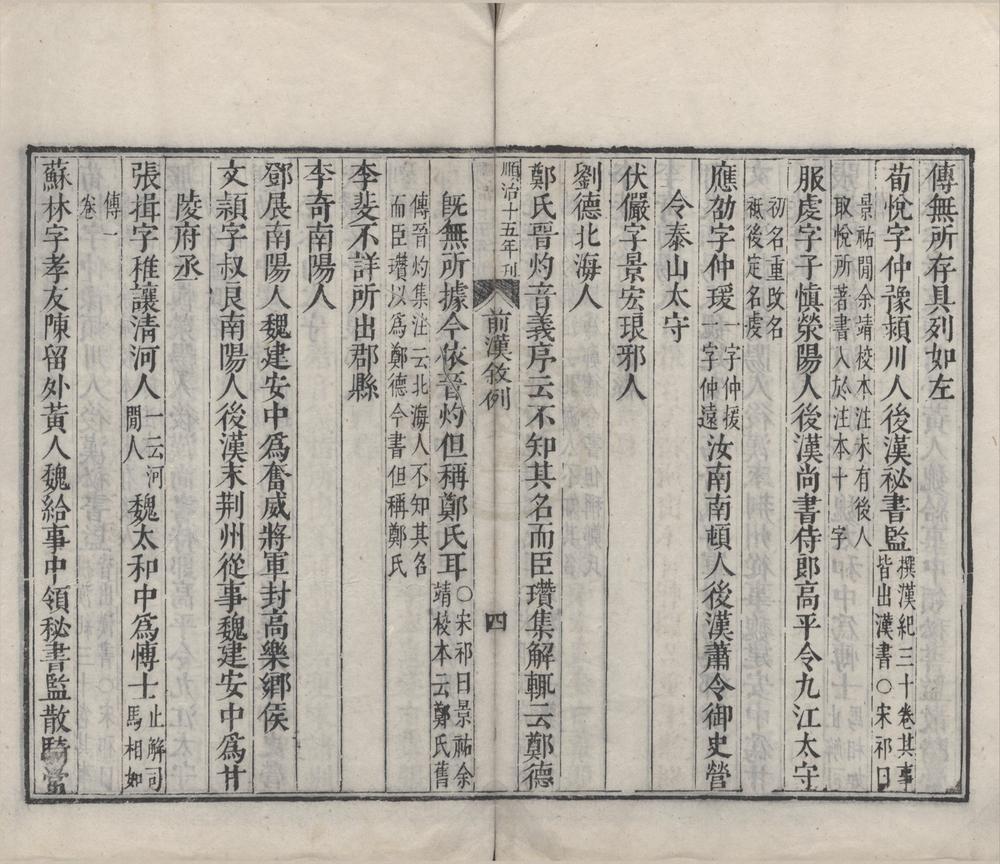 傳無所存具列如左
荀悅字仲豫潁川人後漢秘書監撰漢紀三十卷其事皆出漢書○宋祁曰
景祐閒余靖校本注末有後人取悅所著書入於注本十一字
服虔字子慎滎陽人後漢尚書侍郎高平令九江太守
初名重改名祇後定名虔
應劭字仲瑗一字仲援一字仲遠汝南南頓人後漢蕭令御史營
令泰山太守
伏儼字景宏琅邪人
劉德北海人
鄭氏晉灼音義序云不知其名而臣瓚集解輒云鄭德
順治十五年刊
前漢敘例
四
旣無所據今依晉灼但稱鄭氏耳○宋祁曰景祐余靖校本云鄭氏舊
傳晉灼集注云北海人不知其名而臣瓚以爲鄭德今書但稱鄭氏
李斐不詳所出郡縣
李奇南陽人
鄧展南陽人魏建安中爲奮威將軍封高樂鄉侯
文穎字叔良南陽人後漢末荆州從事魏建安中爲甘
陵府丞
張揖字稚讓清河人一云河閒人魏太和中爲愽士止解司馬相如
傳一卷
蘇林字孝友陳留外黃人魏給事中領秘書監散騎常